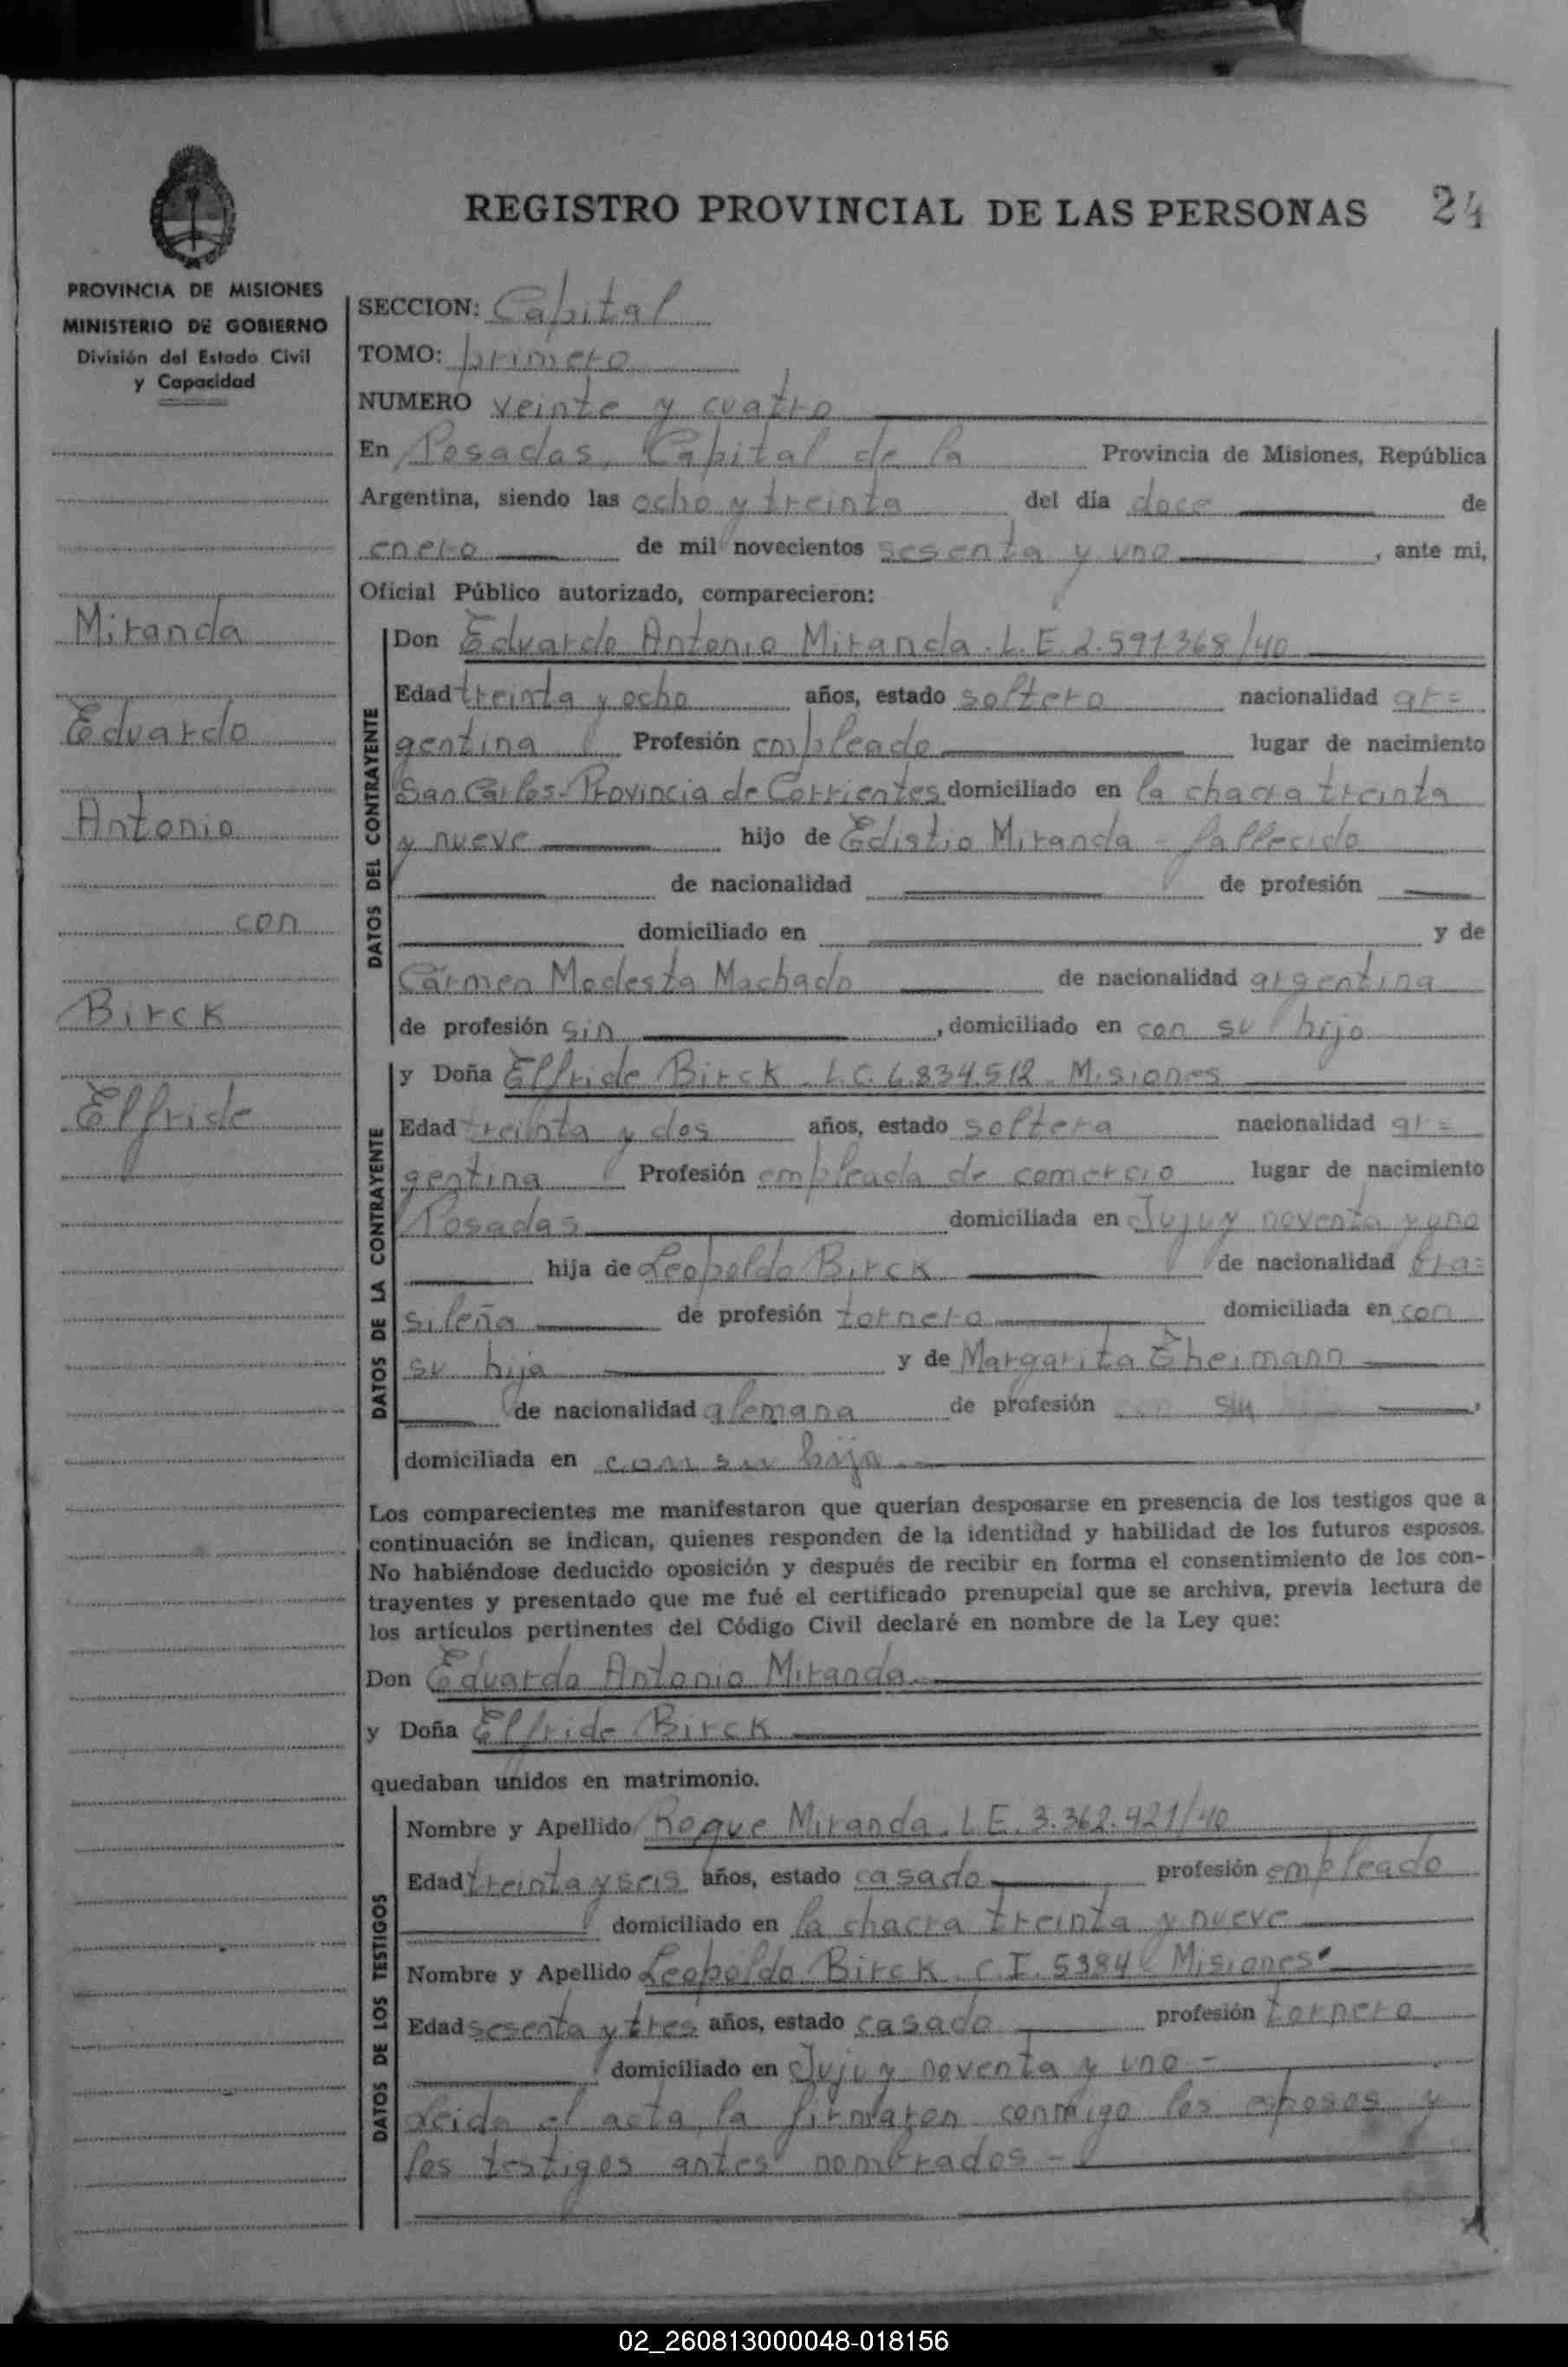 REGISTRO PROVINCIAL DE LAS PERSONAS 24
PROVINCIA DE MISIONES
MINISTERIO DE GOBIERNO
División del Estado Civil
y Capacidad
Miranda
Eduardo
Antonio
con
Birck
Elfride
SECCION: Capital
TOMO: primero
NUMERO veinte y cuatro
En Posadas, Capital de la Provincia de Misiones, República
Argentina, siendo las ocho y treinta del día doce de
enero de mil novecientos sesenta y uno, ante mi,
Oficial Público autorizado, comparecieron:
DATOS DEL CONTRAYENTE
Don Eduardo Antonio Miranda. L.E. 2.591.368/40
Edad treinta y ocho años, estado soltero nacionalidad ar=
gentina Profesión empleado lugar de nacimiento
San Carlos-Provincia de Corrientes domiciliado en la chacra treinta
y nueve hijo de Edistio Miranda - fallecido
de nacionalidad de profesión
domiciliado en y de
Carmen Modesta Machado de nacionalidad argentina
de profesión sin, domiciliado en con su hijo
DATOS DE LA CONTRAYENTE
y Doña Elfride Birck. L.C. 6.834.512. Misiones
Edad treinta y dos años, estado soltera nacionalidad ar=
gentina Profesión empleada de comercio lugar de nacimiento
Posadas domiciliada en Jujuy noventa y uno
hija de Leopoldo Birck de nacionalidad bra=
sileña de profesión tornero domiciliada en con
su hija y de Margarita Eheimann
de nacionalidad alemana de profesión sin,
domiciliada en con su hija
Los comparecientes me manifestaron que querían desposarse en presencia de los testigos que a
continuación se indican, quienes responden de la identidad y habilidad de los futuros esposos.
No habiéndose deducido oposición y después de recibir en forma el consentimiento de los con-
trayentes y presentado que me fué el certificado prenupcial que se archiva, previa lectura de
los artículos pertinentes del Código Civil declaré en nombre de la Ley que:
Don Eduardo Antonio Miranda
y Doña Elfride Birck
quedaban unidos en matrimonio.
DATOS DE LOS TESTIGOS
Nombre y Apellido Roque Miranda. L.E. 3.362.421/40
Edad treinta y seis años, estado casado profesión empleado
domiciliado en la chacra treinta y nueve
Nombre y Apellido Leopoldo Birck C.I. 5384 Misiones
Edad sesenta y tres años, estado casado profesión tornero
domiciliado en Jujuy noventa y uno -
Leida el acta, la firmaron conmigo los esposos y
los testigos antes nombrados -
02_260813000048-018156